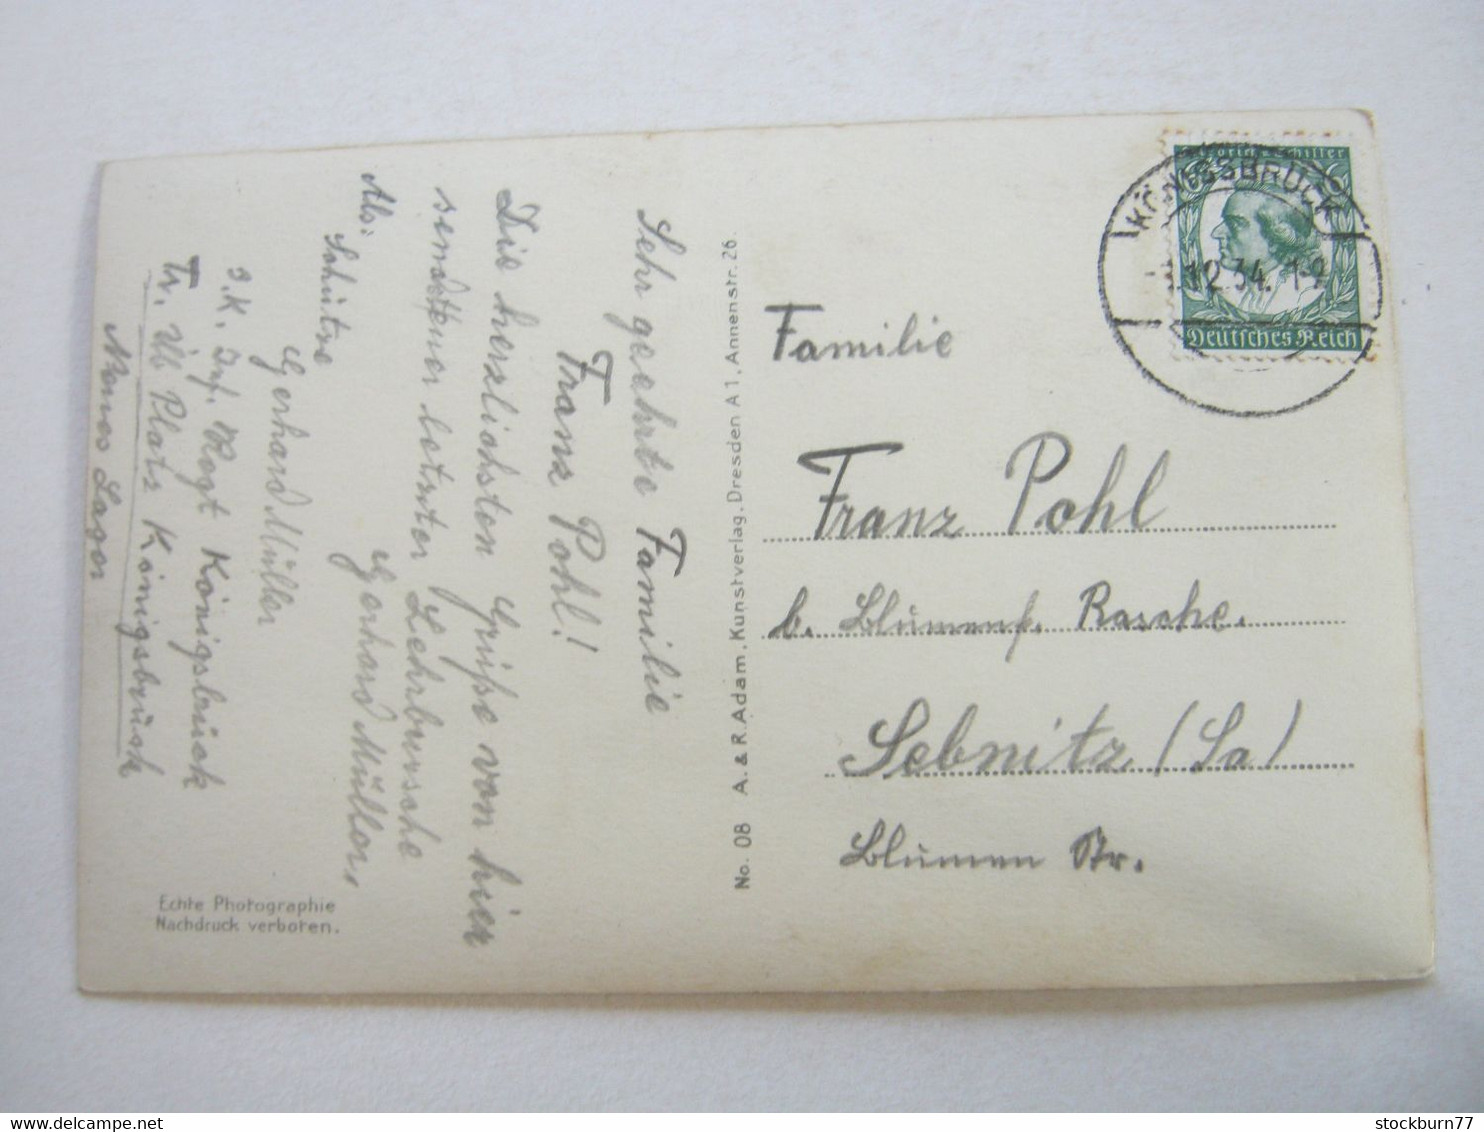 Sehr geehrte Familie
Franz Pohl!
Die herzlichsten Grüße von hier
sendet Ihner letzter Lehrbursche
Gerhard Müller.
Als:
Schütze
Gerhard Müller
3.K. Inf. Regt Königsbrück
Tr. Üb Platz Königsbrück
Neues Lager
Echte Photographie
Nachdruck verboten.
No. 08 A. & R. Adam, Kunstverlag, Dresden A 1, Annenstr. 26.
Friedrich v. Schiller
Deutsches Reich
KÖNIGSBRÜCK
.12.34. 1-9
Familie
Franz Pohl
b. Blumenf. Rasche.
Sebnitz (Sa)
Blumen Str.
stockburn77